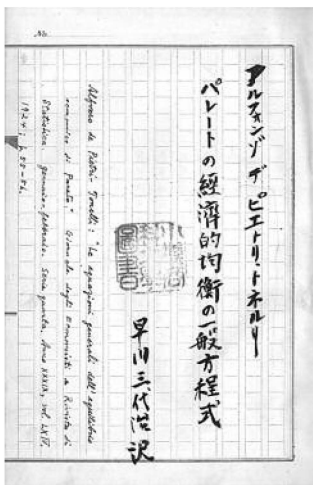 アルフォンゾ デ ピエトリ・トネルリ
パレートの經濟的均衡の一般方程式
早川三代治 訳
圖書
Alfonso de Pietri-Tonelli: "Le equazioni generali dell'equilibrio
economico di Pareto." Giornale degli Economisti e Rivista di
Statistica, gennaio-febbraio, Serie quarta, Anno XXXIX, vol. LXIV,
1924; p. 55-56.